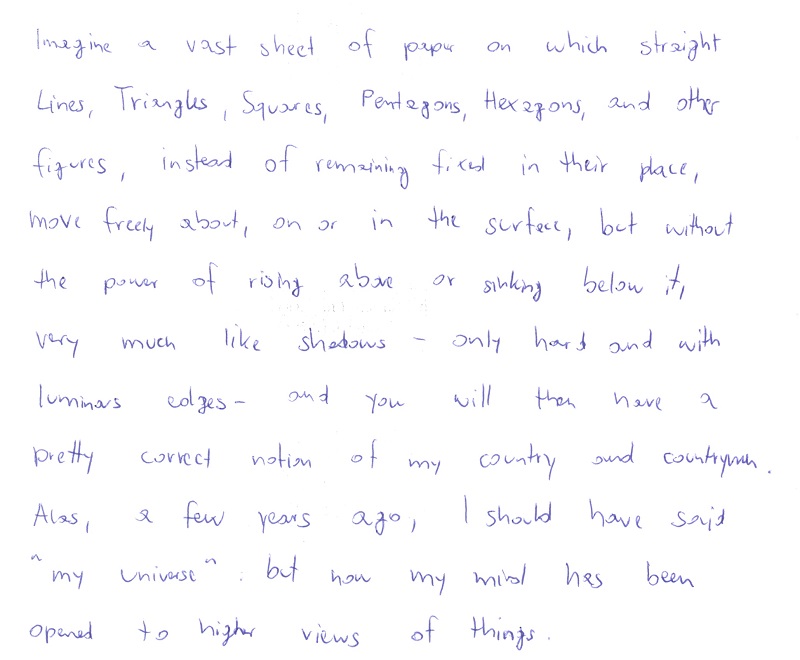 Imagine a vast sheet of paper on which straight
Lines, Triangles, Squares, Pentagons, Hexagons, and other
figures, instead of remaining fixed in their place,
move freely about, on or in the surface, but without
the power of rising above or sinking below it,
very much like shadows - only hard and with
luminous edges - and you will then have a
pretty correct notion of my country and countrymen.
Alas, a few years ago, I should have said
"my universe": but now my mind has been
opened to higher views of things.